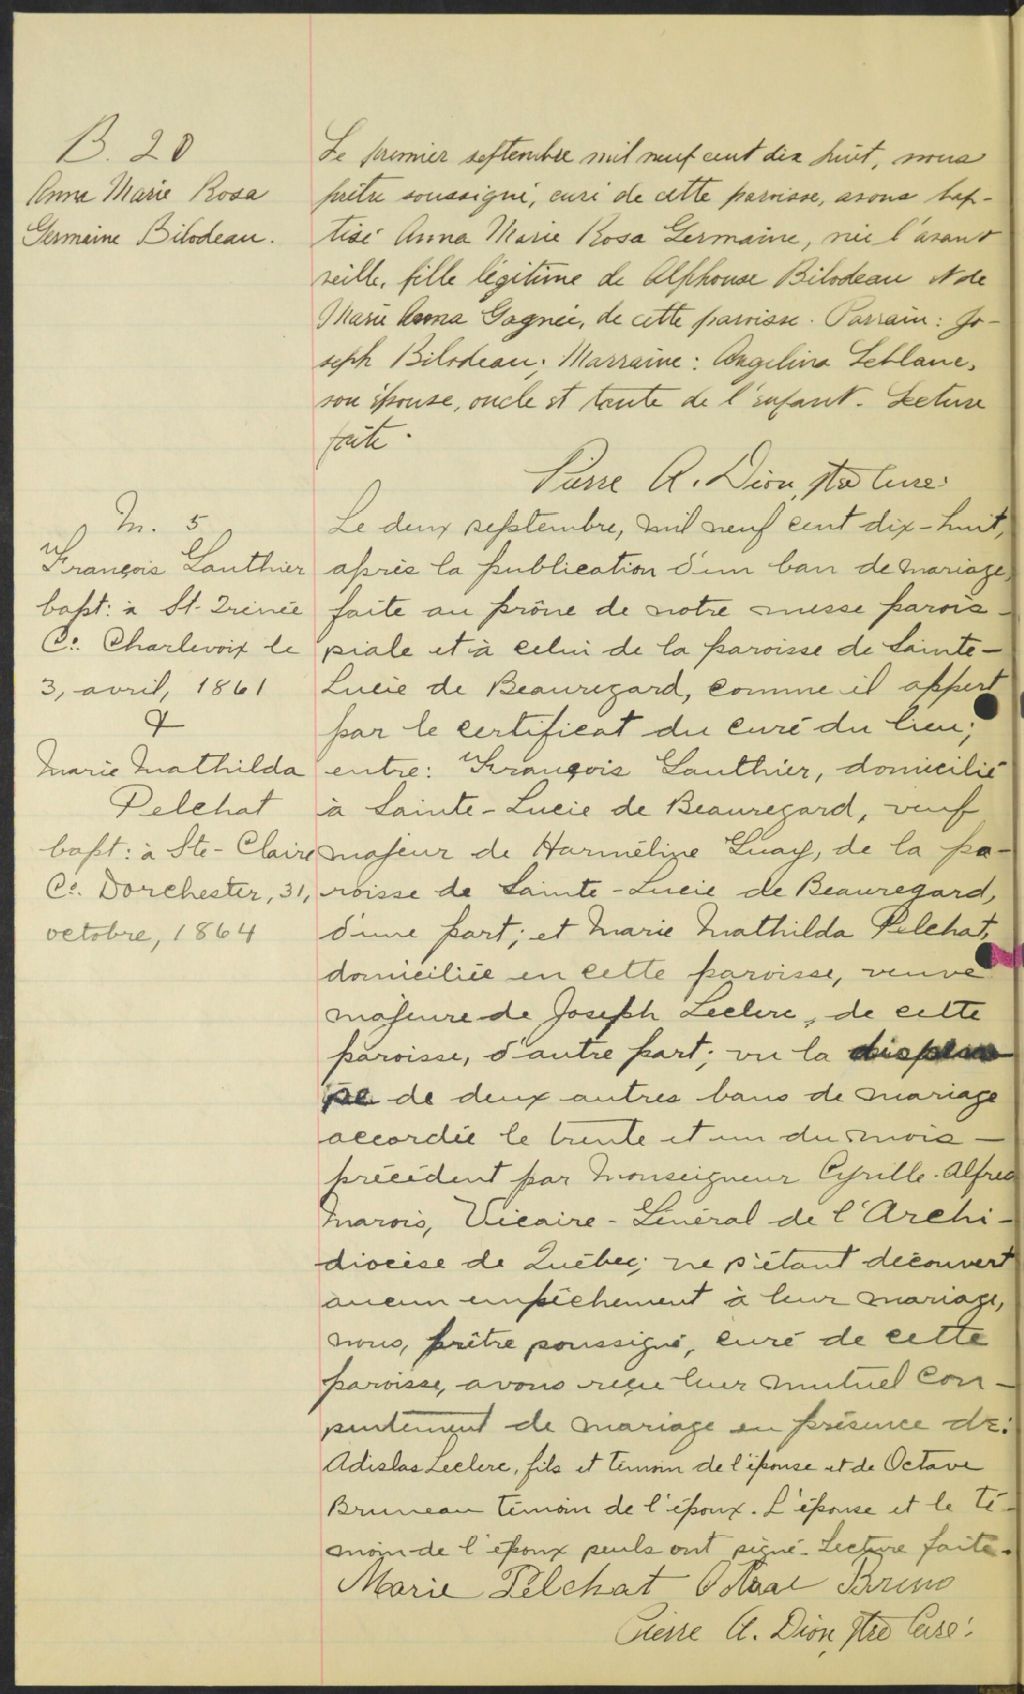 B. 20
Anna Marie Rosa
Germaine Bilodeau.
Le premier septembre mil neuf cent dix huit, nous
prêtre soussigné, curé de cette paroisse, avons bap-
tisé Anna Marie Rosa Germaine, née l'avant
veille, fille légitime de Alphonse Bilodeau et de
Marie Anna Gagnée, de cette paroisse. Parrain: Jo-
seph Bilodeau; Marraine: Angelina Leblanc,
son épouse, oncle et tante de l'enfant. Lecture
faite.
Pierre A. Dion, ptre Curé.
M. 5
François Gauthier
bapt: à St-Irénée
Co. Charlevoix le
3, avril, 1861
&
Marie Mathilda
Pelchat
bapt: à Ste-Claire
Co. Dorchester, 31,
octobre, 1864
Le deux septembre, mil neuf cent dix-huit,
après la publication d'un ban de mariage,
faite au prône de notre messe parois-
siale et à celui de la paroisse de Sainte-
Lucie de Beauregard, comme il appert
par le certificat du curé du lieu;
entre: François Gauthier, domicilié
à Sainte-Lucie de Beauregard, veuf
majeur de Harméline Guay, de la pa-
roisse de Sainte-Lucie de Beauregard,
d'une part; et Marie Mathilda Pelchat,
domiciliée en cette paroisse, veuve
majeure de Joseph Leclerc, de cette
paroisse, d'autre part; vu la dispen-
se de deux autres bans de mariage
accordée le trente et un du mois -
précédent par Monseigneur Cyrille-Alfred
Marois, Vicaire-Général de l'Archi-
diocèse de Québec; ne s'étant découvert
aucun empêchement à leur mariage,
nous, prêtre soussigné, curé de cette
paroisse, avons reçu leur mutuel con-
sentement de mariage en présence de:
Adislas Leclerc, fils et témoin de l'épouse et de Octave
Bruneau témoin de l'époux. L'épouse et le té-
moin de l'époux seuls ont signé. Lecture faite.
Marie Pelchat Bruno
Pierre A. Dion, ptre Curé.